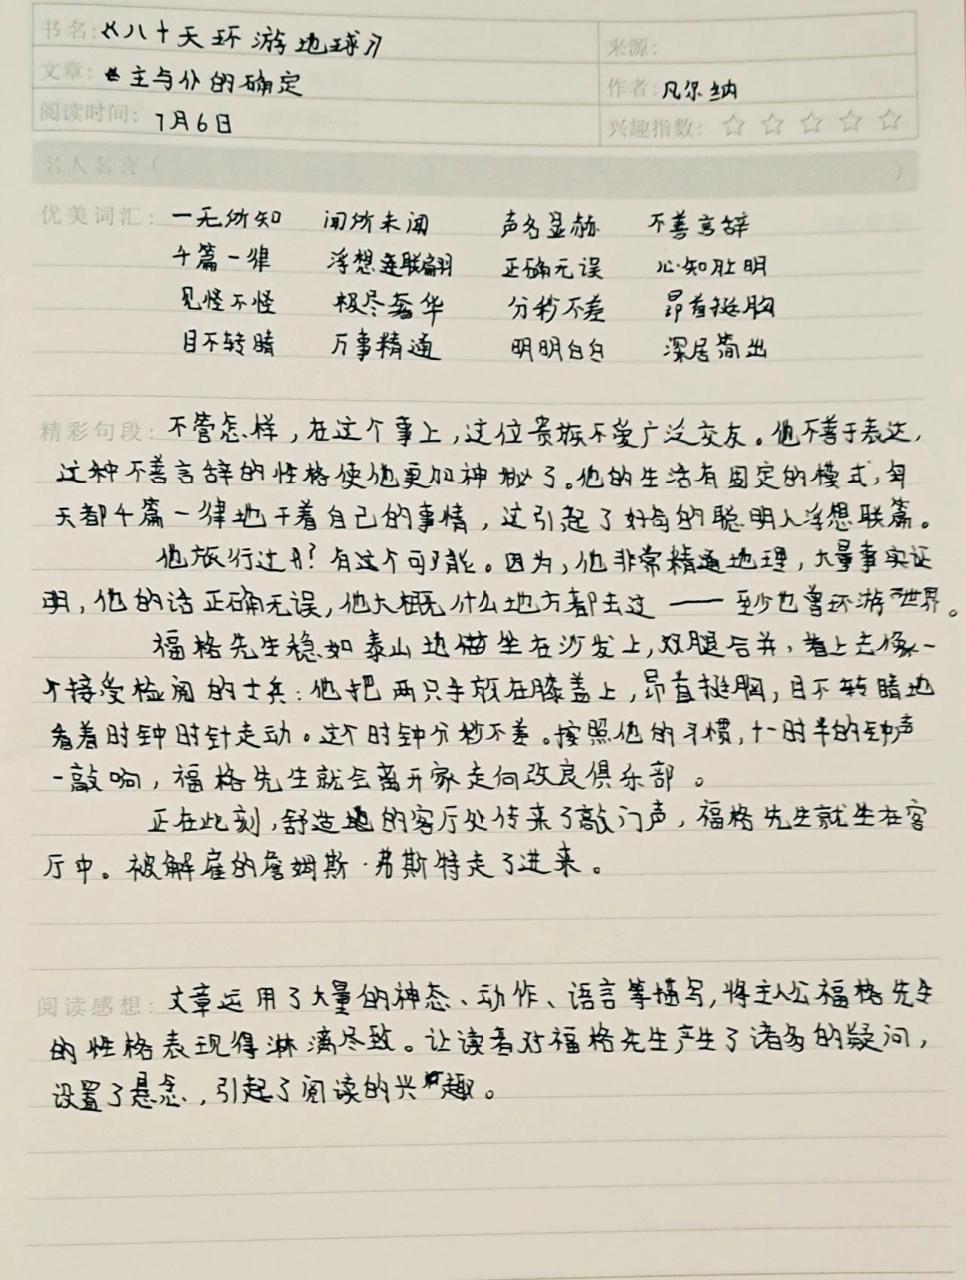 书名:《八十天环游地球》 来源:
文章: 主与仆的确定 作者: 凡尔纳
阅读时间: 7月6日 兴趣指数: ☆ ☆ ☆ ☆ ☆
名人名言( )
优美词汇: 一无所知 闻所未闻 声名显赫 不善言辞
千篇一律 浮想连联翩 正确无误 心知肚明
见怪不怪 极尽奢华 分秒不差 昂首挺胸
目不转睛 万事精通 明明白白 深居简出
精彩句段: 不管怎样,在这个事上,这位贵族不爱广泛交友。他不善于表达,
这种不善言辞的性格使他更加神秘了。他的生活有固定的模式,每
天都千篇一律地干着自己的事情,这引起了好奇的聪明人浮想联篇。
他旅行过吗?有这个可能。因为,他非常精通地理,大量事实证
明,他的话正确无误,他大概什么地方都去过——至少也曾环游世界。
福格先生稳如泰山地端坐在沙发上,双腿合并,看上去像一
个接受检阅的士兵:他把两只手放在膝盖上,昂首挺胸,目不转睛地
看着时钟时针走动。这个时钟分秒不差。按照他的习惯,十一时半的钟声
一敲响,福格先生就会离开家走向改良俱乐部。
正在此刻,舒适地的客厅处传来了敲门声,福格先生就坐在客
厅中。被解雇的詹姆斯·弗斯特走了进来。
阅读感想: 文章运用了大量的神态、动作、语言等描写,将主人公福格先生
的性格表现得淋漓尽致。让读者对福格先生产生了诸多的疑问,
设置了悬念,引起了阅读的兴趣。